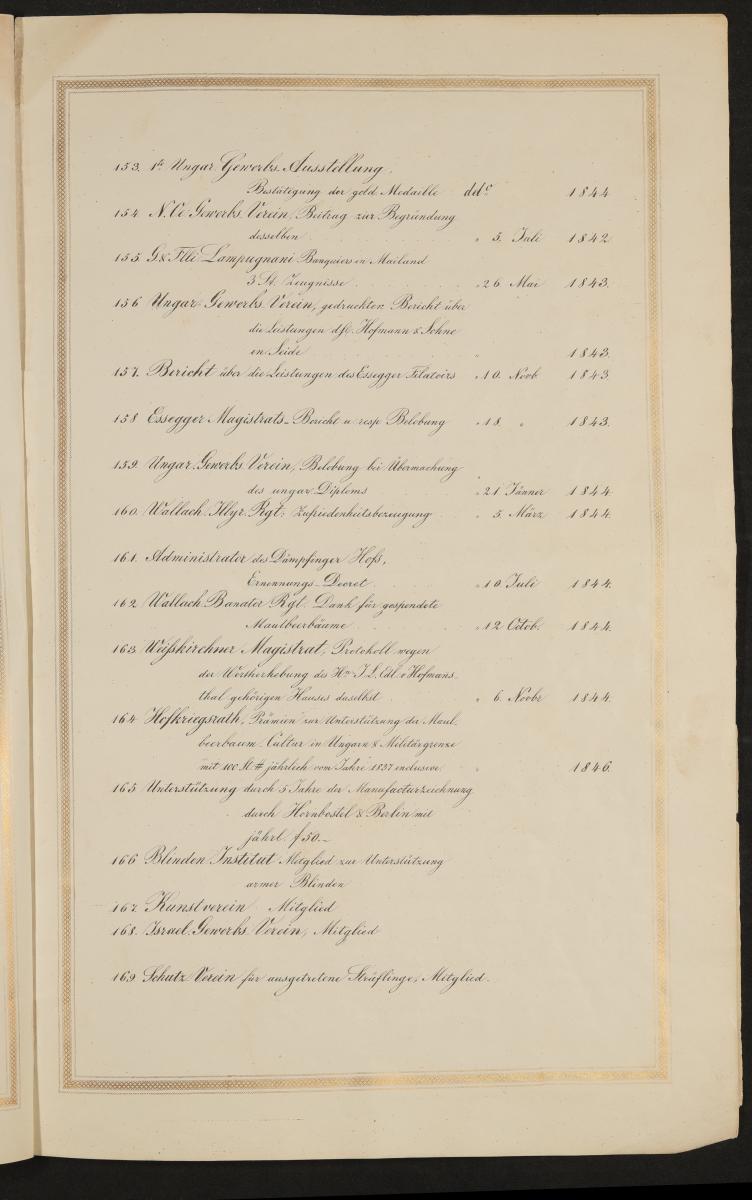 153. 1te Ungar. Gewerbs. Ausstellung.
Bestätigung der gold. Medaille ddo 1844
154. N. Oe. Gewerbs. Verein, Beitrag zur Begründung
desselben " 5. Juli 1842.
155. G & Flli Lampugnani Banquiers in Mailand
3 St. Zeugnisse " 26. Mai 1843.
156. Ungar. Gewerbs. Verein, gedruckter Bericht über
die Leistungen d. H. Hofmann & Söhne
in Seide " 1843.
157. Bericht über die Leistungen des Essegger Filatoirs " 10. Novb. 1843.
158. Essegger Magistrats-Bericht u resp. Belobung " 18. " 1843.
159. Ungar. Gewerbs. Verein, Belobung bei Übermachung
des ungar. Diploms " 21. Jänner 1844.
160. Wallach. Illyr. Rgt: Zufriedenheitsbezeugung " 5. März 1844.
161. Administrator des Dämpfinger Hofs,
Ernennungs-Decret. " 10. Juli 1844.
162. Wallach. Banater Rgt. Dank für gespendete
Maulbeerbäume " 12. Octob. 1844.
163. Weißkirchner Magistrat, Protokoll wegen
der Wertherhebung des Hrn J. L. Edl. v Hofmans-
thal gehörigen Hauses daselbst " 6. Novbr 1844.
164. Hofkriegsrath, Prämien zur Unterstützung der Maul-
beerbaum-Cultur in Ungarn & Militärgrenze
mit 100 St # jährlich vom Jahre 1837 inclusive. " 1846.
165. Unterstützung durch 5 Jahre der Manufacturzeichnung
durch Hornbostel & Berlin mit
jährl. f 50.-
166. Blinden Institut Mitglied zur Unterstützung
armer Blinden
167. Kunstverein Mitglied
168. Israel. Gewerbs. Verein, Mitglied
169. Schutz Verein für ausgetretene Sträflinge, Mitglied.